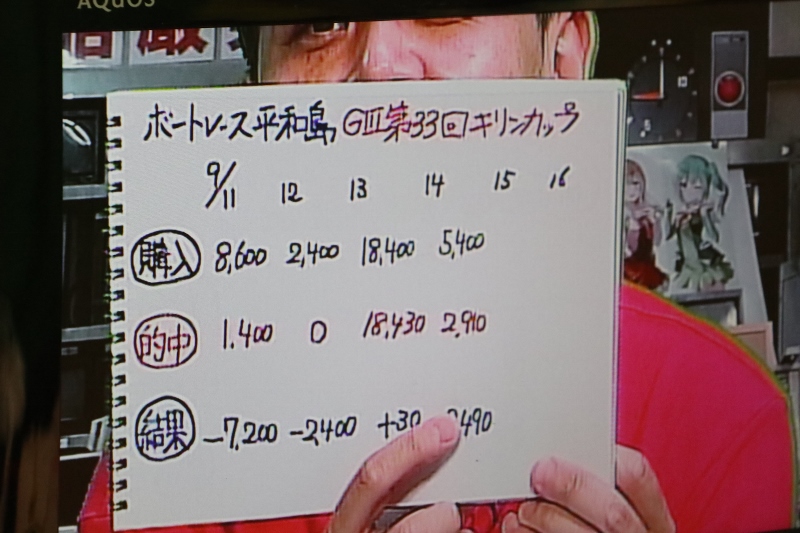 AQUOS
ボートレース平和島 GⅢ第33回キリンカップ
9/11 12 13 14 15 16
購入 8,600 2,400 18,400 5,400
的中 1,400 0 18,430 2,910
結果 -7,200 -2,400 +30 2490